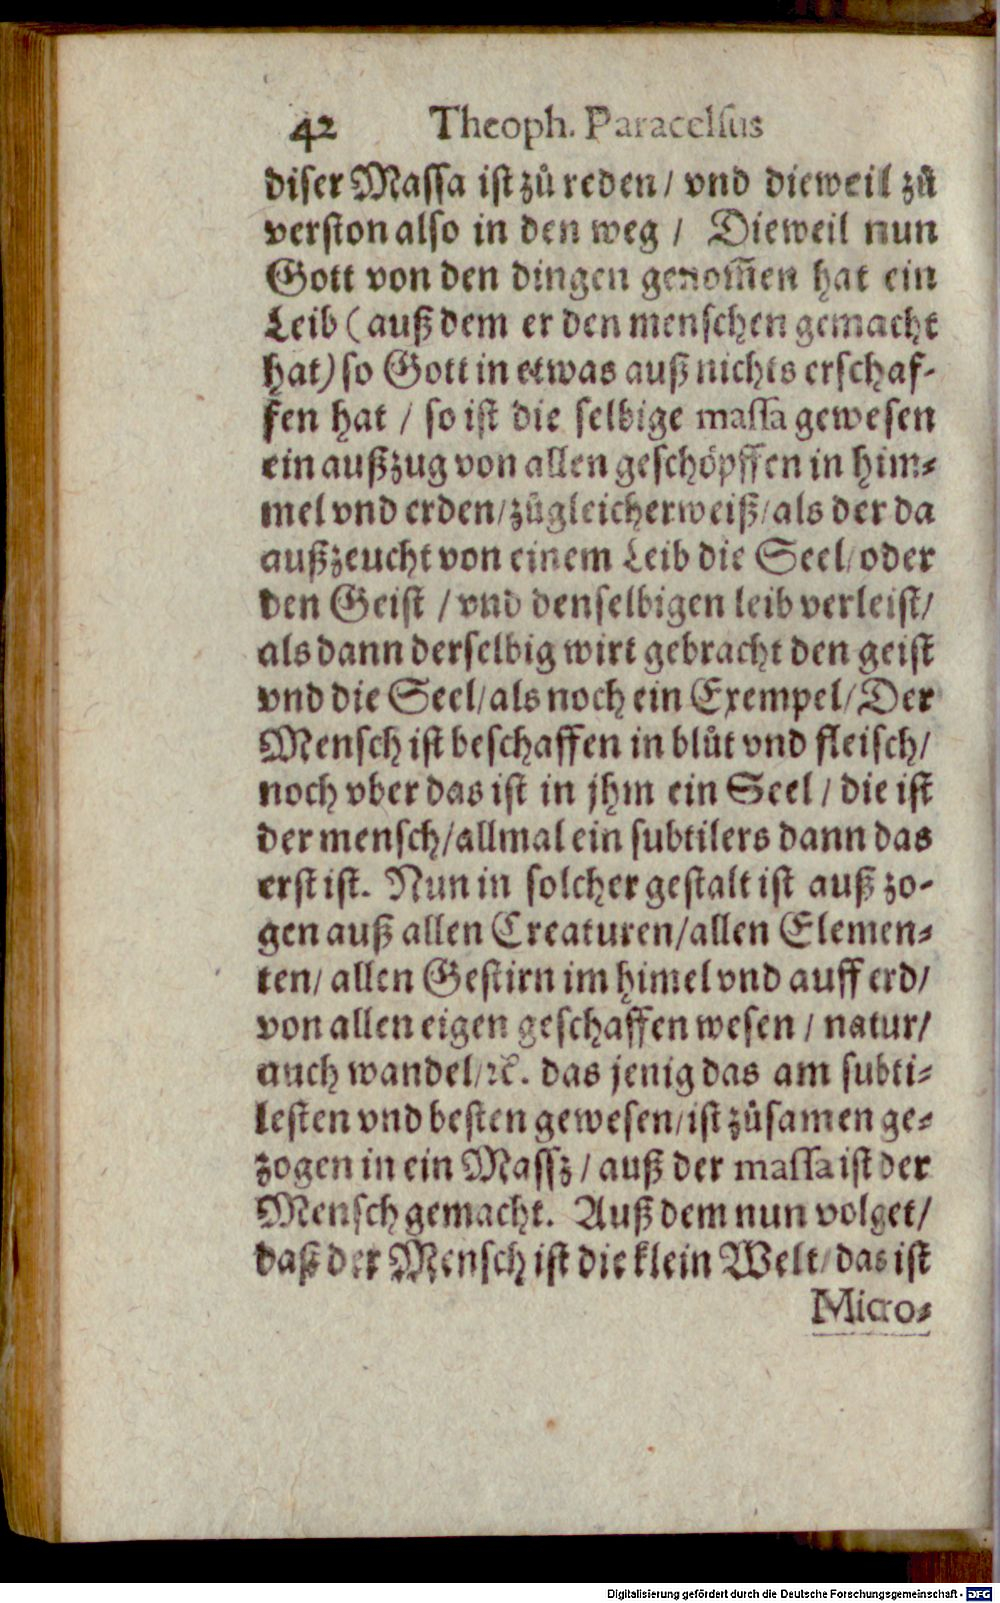 42 Theoph. Paracelsus
diser Massa ist zů reden / vnd dieweil zů
verston also in den weg / Dieweil nun
Gott von den dingen genom̃en hat ein
Leib (auß dem er den menschen gemacht
hat) so Gott in etwas auß nichts erschaf-
fen hat / so ist die selbige massa gewesen
ein außzug von allen geschöpffen in him-
mel vnd erden / zůgleicherweiß / als der da
außzeucht von einem Leib die Seel / oder
den Geist / vnd denselbigen leib verleist /
als dann derselbig wirt gebracht den geist
vnd die Seel / als noch ein Exempel / Der
Mensch ist beschaffen in blůt vnd fleisch /
noch vber das ist in jhm ein Seel / die ist
der mensch / allmal ein subtilers dann das
erst ist. Nun in solcher gestalt ist auß zo-
gen auß allen Creaturen / allen Elemen-
ten / allen Gestirn im himel vnd auff erd /
von allen eigen geschaffen wesen / natur /
auch wandel / ꝛc. das jenig das am subti-
lesten vnd besten gewesen / ist zůsamen ge-
zogen in ein Massz / auß der massa ist der
Mensch gemacht. Auß dem nun volget /
daß der Mensch ist die klein Welt / das ist
Micro-
Digitalisierung gefördert durch die Deutsche Forschungsgemeinschaft - DFG